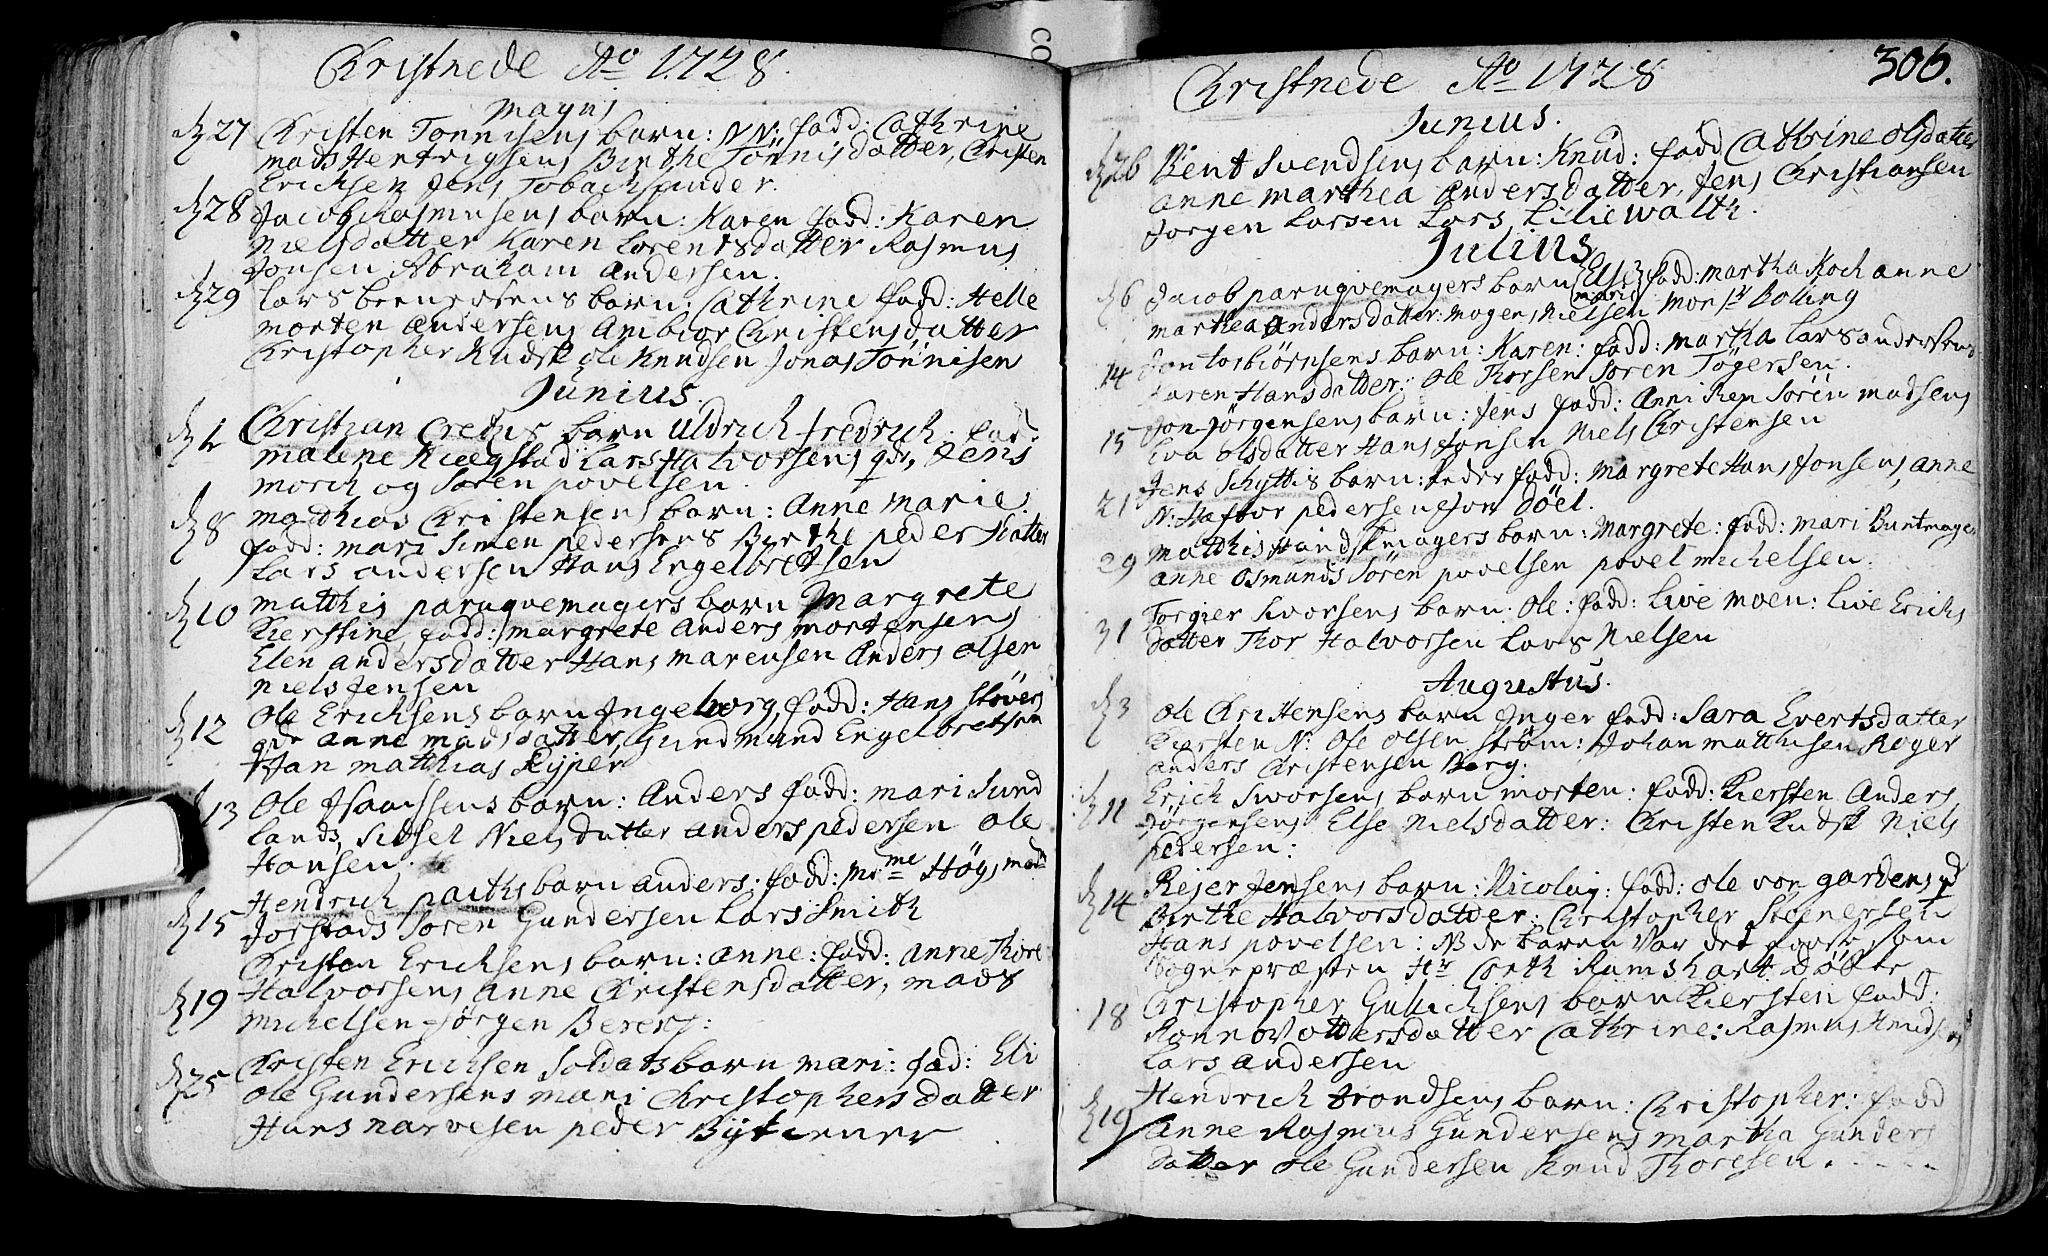 Christnede Ao 1728.
Mayus
27 Christen Tönnisens barn: NN: fadd: Cathrine
Mads Hentrigsens Birthe Tönnisdatter, Christen
Ericksen Jens Tobachspinder.
28 Jacob Rasmusens barn: Karen fadd: Karen
Nielsdatter Karen Lorentsdatter Rasmus
Jonsen Abraham Andersen.
29 Lars berntsens barn: Cathrine fadd: Helle
morten Andersens Ambior Christensdatter
Christopher Rudsk ole Knudsen Jonas Tönnisen
Junius.
1 Christian Cretzis barn Uldrich fredrich. fad:
malene Lars Halvorsens qde, Jens
morch og Sören povelsen.
8 Matthias Christensens barn: Anne Marie:
fadd: mari Simen pedersens Birthe peders datter
Lars andersen Hans Engelbretsen
10 matthis paruqvemagers barn Margrete
Kierstine fadd: margrete Anders mortensens
Elen andersdatter Hans marensen Anders olsen
Niels Jensen
12 Ole Ericksens barn Ingeborg, fadd: Hans stövers
qde anne madsdatter, Gundmund Engelbretsen
Jan matthias Rijper
13 Ole Isaachsens barn: Anders fadd: mari Sund
Lands, Sidsel Nielsdatter anders pedersen ole
Hansen.
15 Hendrich parths barn anders: fadd: Mme Hög, mad
Jorstads Sören Gundersen Lars Smith
19 Christen Ericksens barn: anne: fadd: anne Thore
Halvorsens Anne Christensdatter, mads
Michelsen Jörgen Berers:
25 Christen Ericksen Soldats barn mari: fad: Eli
ole Gundersens mari Christophersdatter
Hans narvesen peder Bijtiener
306.
Christnede Ao 1728
Junius.
26 Bent Svendsens barn: Knud: fadd Cathrine olsdatter
anne marthea Andersdatter, Jens Christiansen
Jörgen Larsen Lars Liliewalth.
Julius
6 Jacob paruqvemagers barn Else marie fadd: martha Koch anne
marthea Andersdatter: Mogens Nielsen Monsr Bolling
14 Jon torbiörnsens barn: Karen: fadd: martha Lars andersens
Karen Hansdatter: Ole Thorsen Sören Tögersen.
15 Jon Jörgensens barn: Jens fadd: Anniken Sören madsens
Eva olsdatter Hans Jonsen Niels Christensen
21 Jens Schyttis barn: Peder fadd: Margrete Hans Jonsens, anne
N: Hafvor pedersen Jon Döel.
29 Matthis Handskmagers barn: Margrete: fadd: mari Buntmagers
anne Osmunds Sören povelsen povel michelsen.
31 Torgier Sivorsens barn: Ole: fadd: Live Moen: Live Erichs
datter Thor Halvorsen Lars Nielsen
Augustus.
3 Ole Christensens barn Inger fadd: Sara Evertsdatter
Kiersten N: Ole olsen Ström: Johan matthisen Roger
anders Christensen Berg:
11 Erich Sivorsens barn morten: fadd: Kiersten Anders
Jörgensens Else Nielsdatter: Christen Rudsk Niels
pedersen:
14 Rejer Jensens barn: Nicolaj: fadd: ole von gardens qd
Birthe Halvorsdatter: Christopher Steenersen
Hans povelsen: NB de baren var det förste som
Sognepræsten Hr Corth Ramshart döbte
18 Christopher Gulichsens barn Kiersten fadd:
Ronnov ottersdatter Cathrine: Rasmus Knudsens
Lars Andersen
19 Hendrich trondsens barn: Christopher: fadd
Anne Rasmus Gundersens martha Gunders
datter ole Gundersen Knud Thoresen.